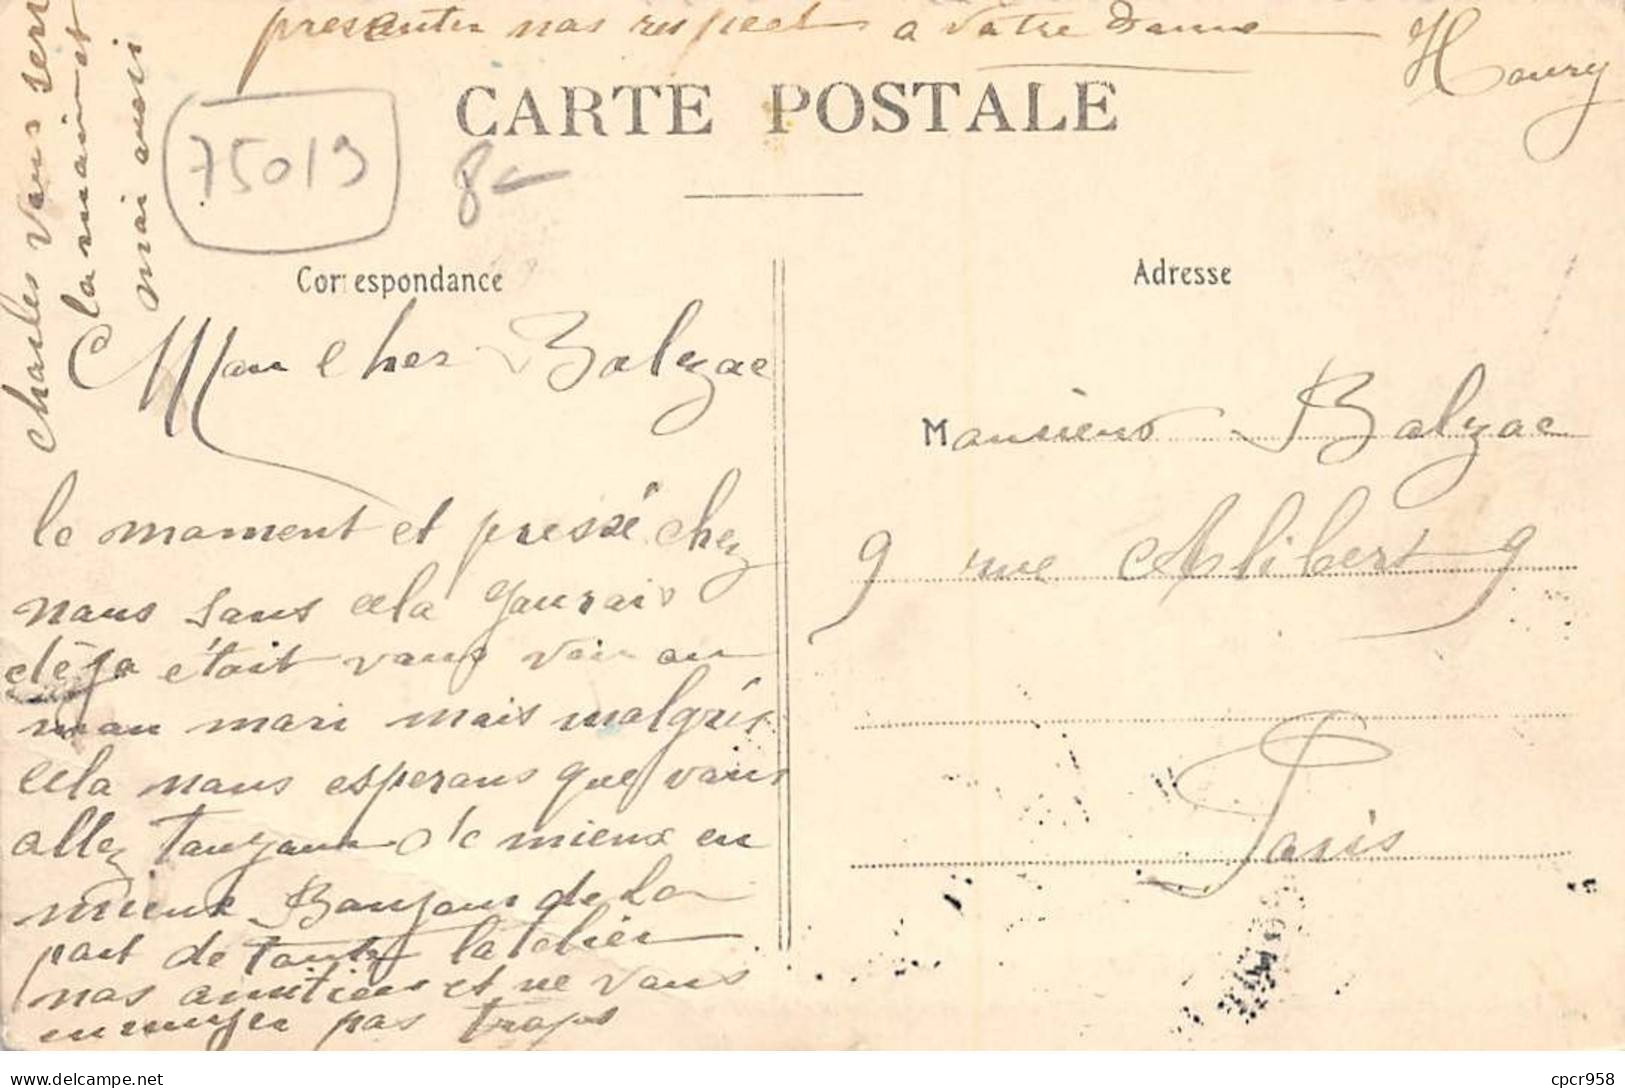 presenter nos respect a votre Dame
Houry
CARTE POSTALE
75019
8-
Correspondance
Adresse
Charles vous sert
la main et
moi aussi
Mon cher Balzac
le moment et pressé chez
nous sans cela j'aurais
déja était vous voir ou
mon mari mais malgrés
cela nous esperons que vous
allez toujours de mieux en
mieux Bonjour de la
part de toute l'atelier
nos amitiers et ne vous
ennuyer pas trops
Monsieur Balzac
9 rue Alibert 9
Paris
cpcr958